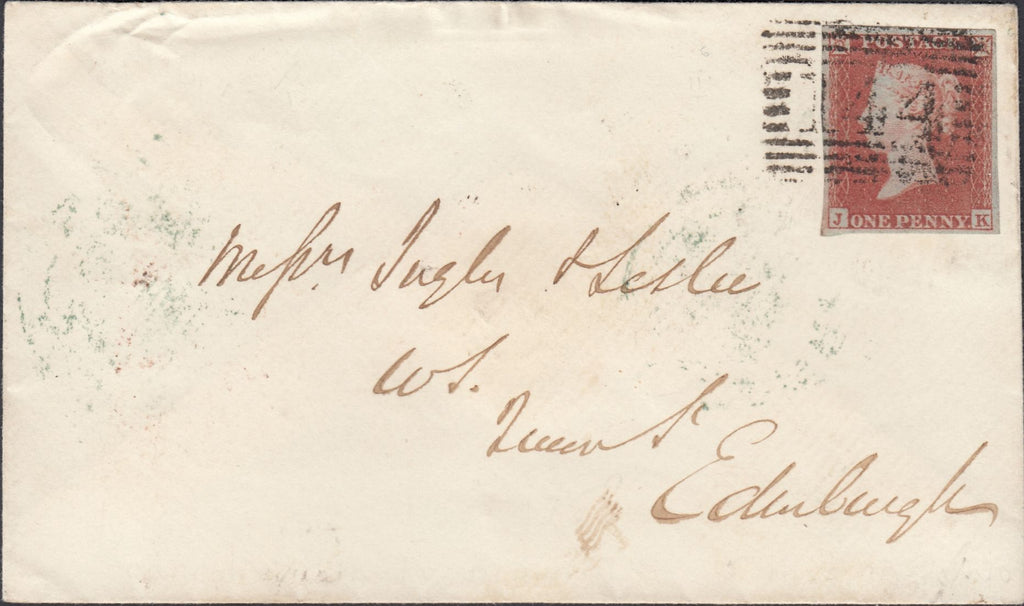 POSTAGE
44
J ONE PENNY. K
Messrs. Inglis & Leslie
W S.
Queen St
Edinburgh